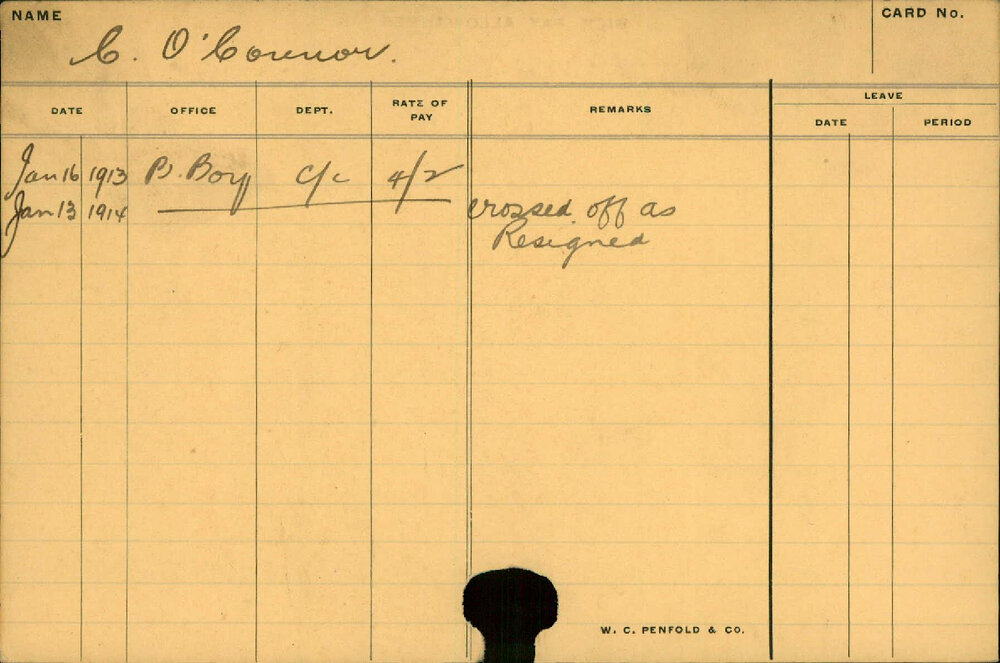 NAME
C. O'Connor.
CARD No.
DATE OFFICE DEPT. RATE OF PAY REMARKS LEAVE
DATE PERIOD
Jan 16 1913 B. Boy C/c 4/2
Jan 13 1914 crossed off as
Resigned
W. C. PENFOLD & CO.